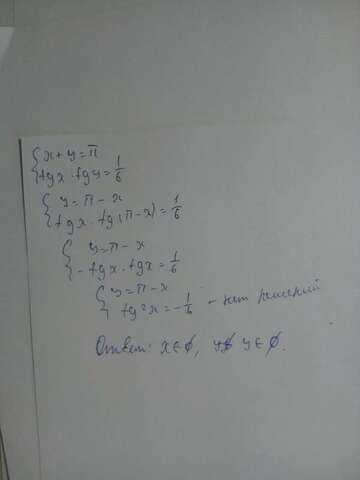 x + y = π
tgx · tgy = 1/6
y = π - x
tgx · tg(π - x) = 1/6
y = π - x
- tgx · tgx = 1/6
y = π - x
tg²x = - 1/6 - нет решений
Ответ: x ∈ ∅, y ∈ ∅.